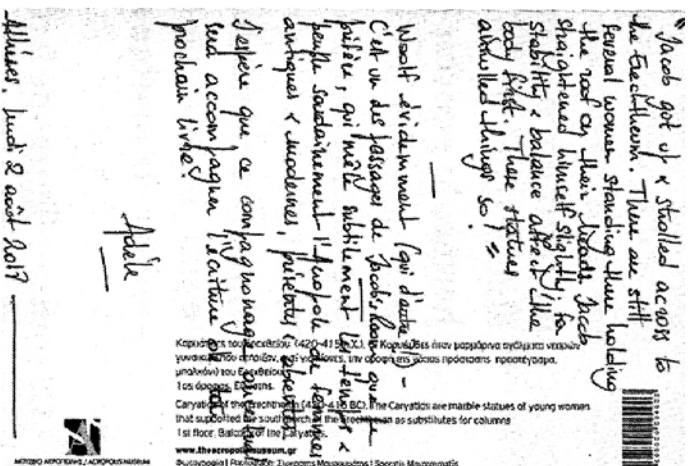 "Jacob got up & strolled across to
the Erechtheum. There are still
several women standing there holding
the roof on their heads. Jacob
straightened himself slightly; for
stability & balance affect the
body first. These statues
annulled things so!"
Woolf évidemment (qui d'autre !!) –
C'est un des passages de Jacob's Room que je
préfère, qui mêle subtilement les temps &
peuple soudainement l'Acropole de femmes
antiques & modernes, présentes absentes
J'espère que ce compagnonage
sud accompagner l'écriture de ton
prochain livre.
Adèle
Athènes, lundi 2 août 2017
Καρυάτιδες του Ερεχθείου (420-415 π.Χ.). Οι Καρυάτιδες ήταν μαρμάρινα αγάλματα νεαρών
γυναικών που στήριζαν, αντί για κίονες, την οροφή της νότιας πρόστασης
μπαλκόνι του Ερεχθείου
1ος όροφος, Εξώστης.
Caryatids of the Erechtheion (420-415 BC). The Caryatids are marble statues of young women
that supported the south porch of the Erechtheion as substitutes for columns
1st floor, Balcony of the Caryatids.
www.theacropolismuseum.gr
Φωτογραφία | Socratis Mavrommatis
ΜΟΥΣΕΙΟ ΑΚΡΟΠΟΛΗΣ / ACROPOLIS MUSEUM